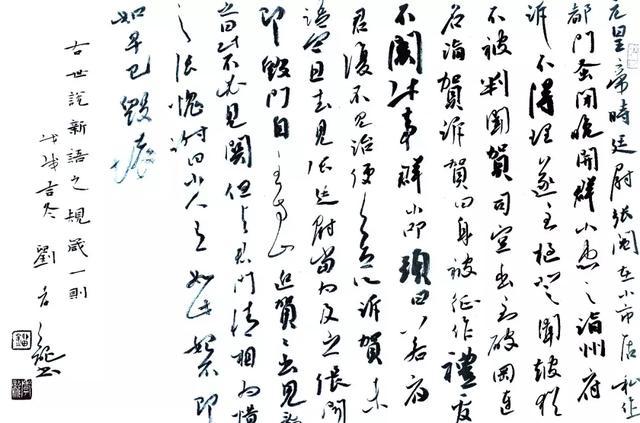 元皇帝時廷尉張闓在小市居私作
都門蚤閉晚開群小患之詣州府
訴不得理遂至檛登聞鼓猶
不被判聞賀司空出至破岡連
名詣賀訴賀曰身被征作禮官
不關此事群小叩頭曰若府
君復不見治便無所訴賀未
語令且去見張廷尉當為及之張聞
即毀門自至方山迎賀賀出見辭
之曰此不必見關但與君門情相為惜
之張愧謝曰小人有如此始不即
知早已毀壞
古世說新語之規箴一則
戊戌吉冬劉